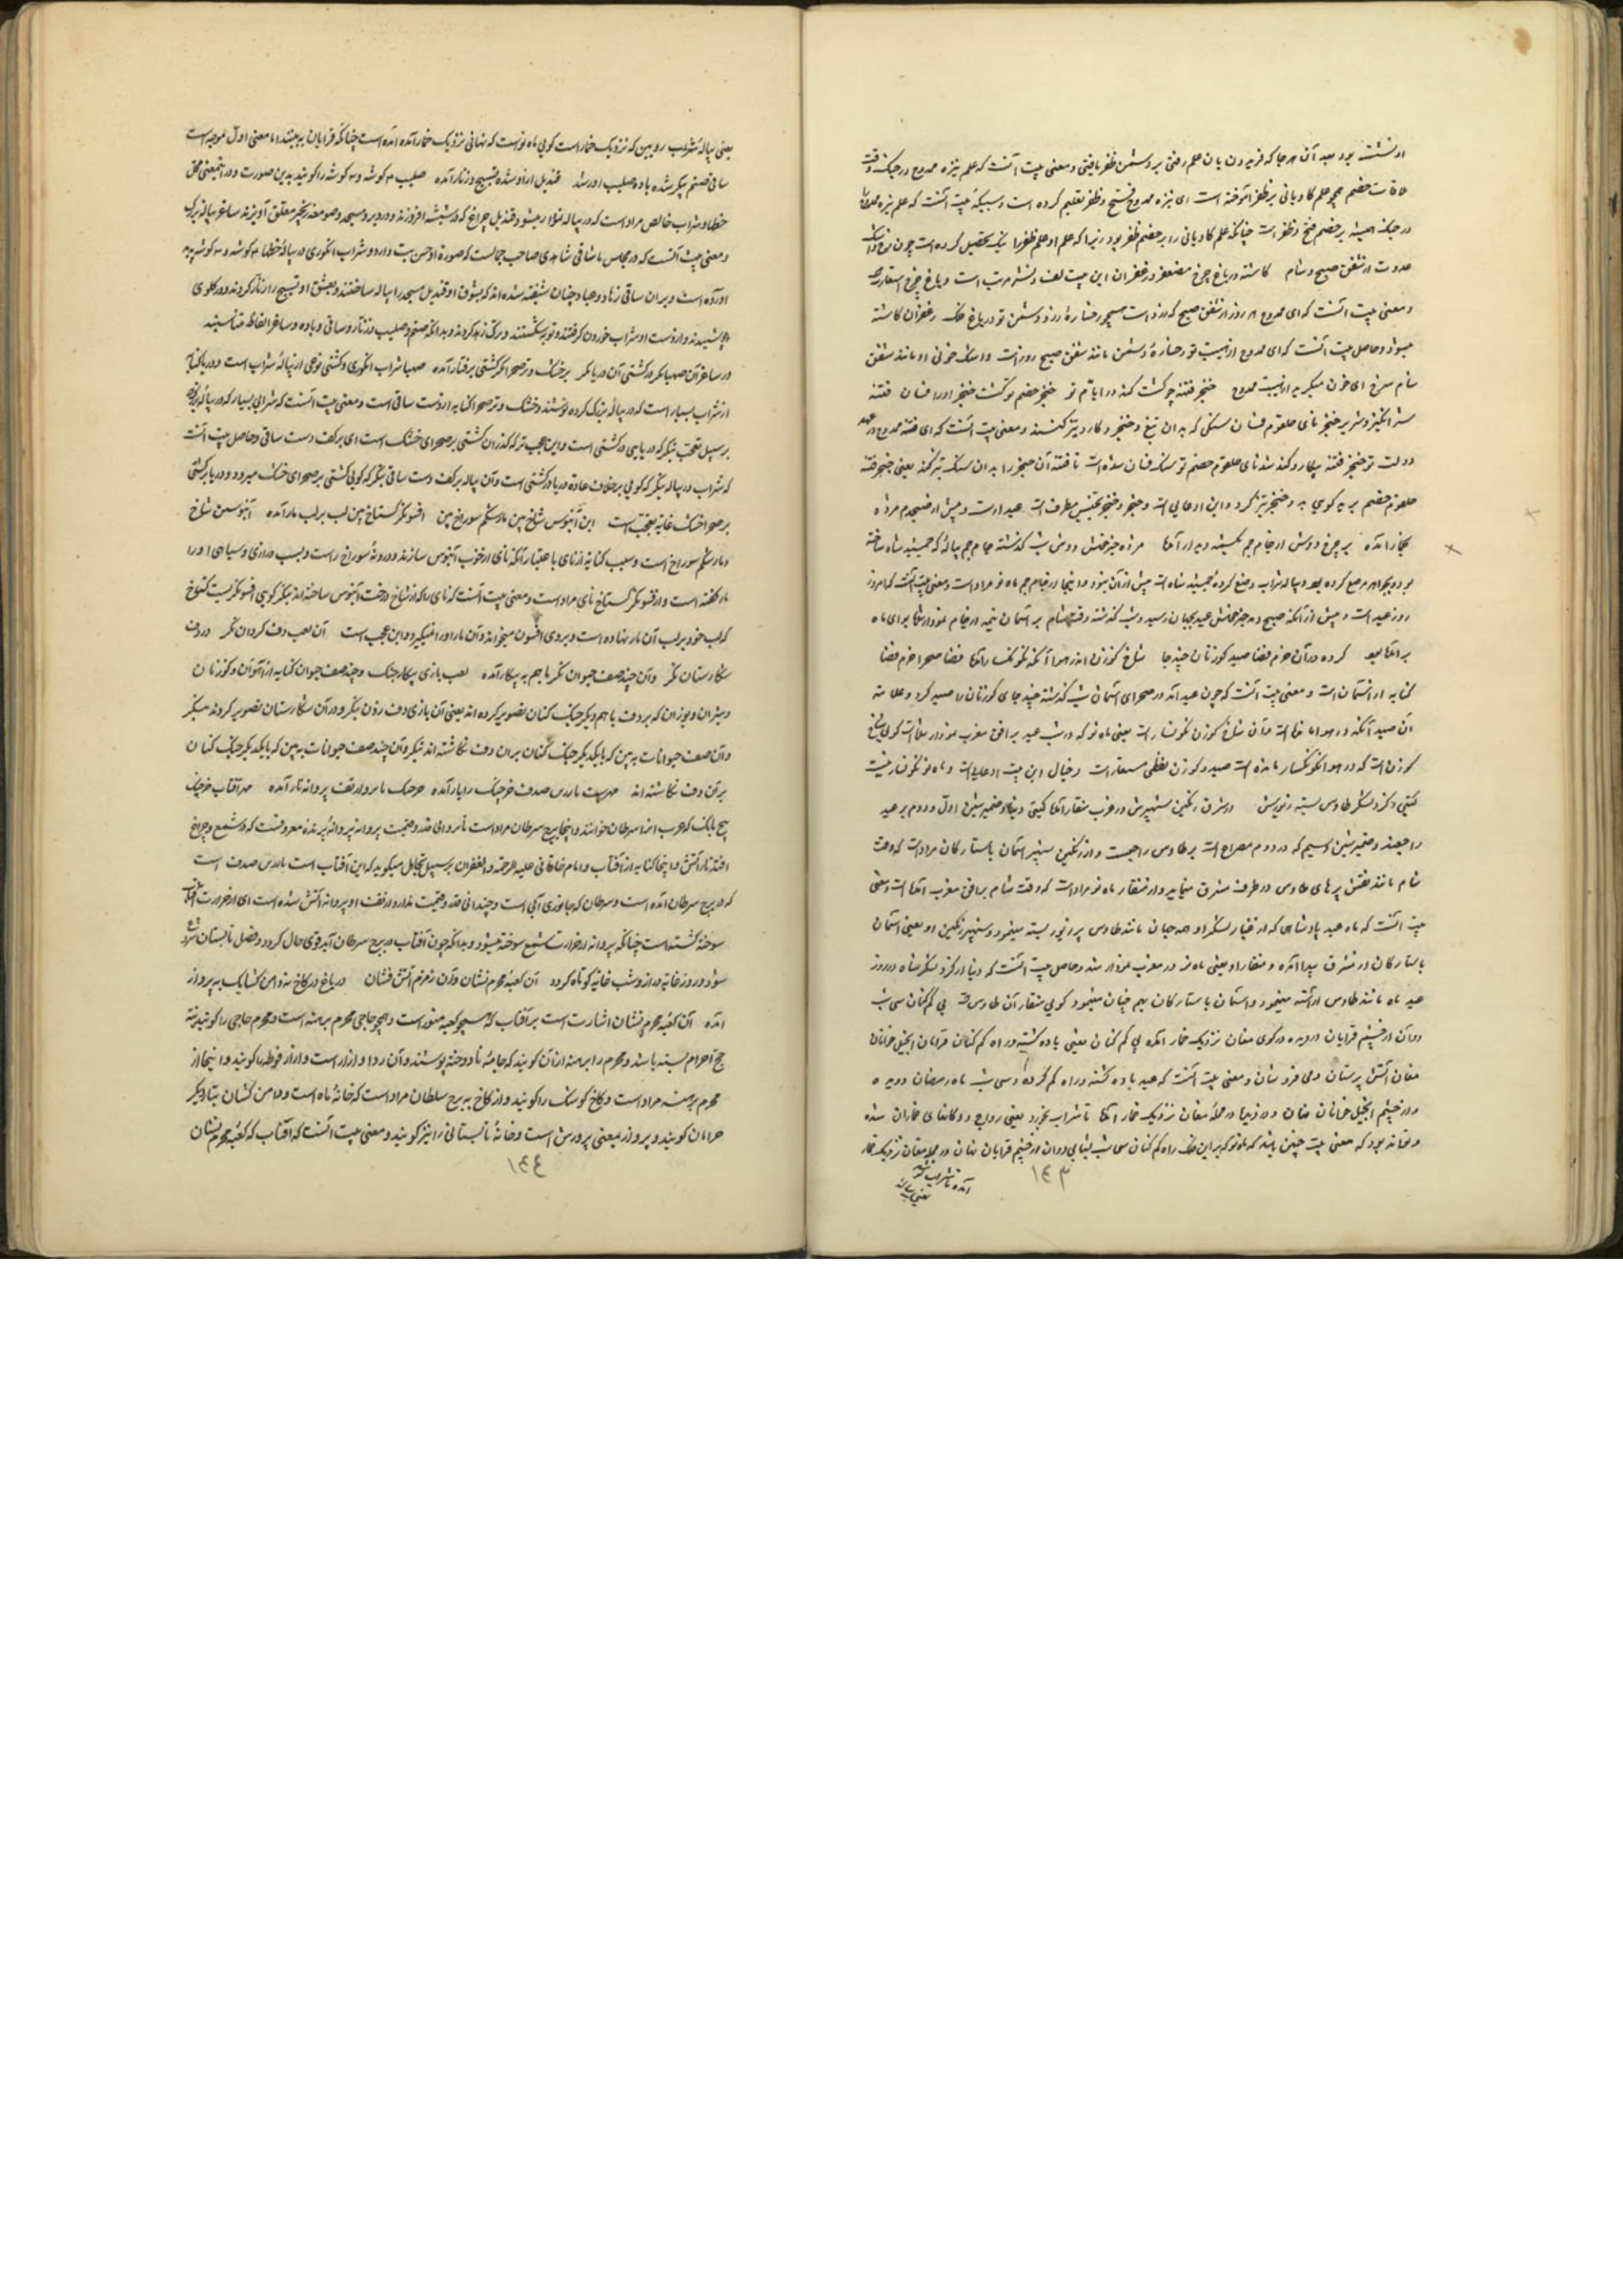 او نشسته بود بعد آن هرجا که فریدون بان علم رفتی بر دشمن ظفر یافتی و معنی بیت آنست که علم نیزه ممدوح در جنک وقت
ملاقات خصم همچو علم کاویانی بر ظفر آموخته است ای نیزه ممدوح فتح و ظفر تعلیم کرده است
در جنک همیشه بر خصم فتح و ظفر است چنانکه علم کاویانی را بر خصم ظفر بود زیرا که علم او علم ظفر را نیک تحصیل کرده است چون
عدوت از شفق صبح و شام کاشته در باغ چرخ معصفر و زعفران این بیت لف و نشر مرتب است و باغ چرخ استعارت
و معنی بیت آنست که ای ممدوح هر روز از شفق صبح که زرد است همچو رخساره زرد دشمن تو در باغ فلک زعفران کاشته
میشود و حاصل بیت آنست که ای ممدوح از هیبت تو رخساره دشمن مانند شفق صبح زرد است و اشک خونی او مانند شفق
شام سرخ ای خون میگرید از هیبت ممدوح خنجر فتنه چو کشت کند در ایام تو خنجر خصم تو کشت خنجر او را فسان فتنه
شر انگیز و شریر خنجر نای حلقوم فسان سنگی که بدان تیغ و خنجر و کارد تیز کنند و معنی بیت آنست که ای فتنه ممدوح در عهد
دولت تو خنجر فتنه بیکار و کند شد نای حلقوم خصم تو سنک فسان شده است تا فتنه آن خنجر را بدان سنک تیز کند یعنی خنجر فتنه
حلقوم خصم ببرد کویی به و خنجر تیز کرد و این ادعایی است و خنجر و خنجر تجنیس مطرف است عید است و پیش از صبحدم مژده
بخمار آمده بر چرخ دوش از جام جم یک نیمه دیدار آمده مژده خبر خوش دوش شب گذشته جام جم پیاله که جمشید شاه ساخته
بود و بجواهر مرصع کرده بود و پیاله شراب وضع کرده جمشید شاه است پیش از آن نبود و اینجا از جام جم ماه نو مراد است و معنی بیت آنست که امروز
روز عید است و پیش از آنکه صبح دمد خبر خوش عید بجهان رسید و شب گذشته وقت شام بر آسمان نیمه از جام نمودار شد
بر آمده بود کرده در آن خرم فضا صید گوزنان چند جا شاخ گوزن اندر هوا آنک نگونسار آمده فضا صحرا خرم فضا
کنایه از آسمان است و معنی بیت آنست که چون عید آمد در صحرای آسمان شب گذشته چند جای گوزنان را صید کرد و علامت
آن صید آنکه در هوا مانده است و آن شاخ گوزن نگونسار است یعنی ماه نو که در شب عید بر افق مغرب نمودار شد کویی شاخ
گوزن است که در هوا نگونسار مانده است صید و گوزن لفظی مستعار است و خیال این بیت ادعایی است و ماه نو نگونسار نیست
گیتی ز گرد لشکرش طاوس بسته زیورش در شرق رنگین شهپرش در غرب منقار آمده گیتی دنیا و ضمیر شین اول و دوم بر عید
راجعند و ضمیر شین سیم که در دوم مصراع است بر طاوس راجع است و از رنگین شهپر آسمان با ستارگان مراد است که وقت
شام مانند نقش پرهای طاوس در طرف مشرق مینماید و از منقار ماه نو مراد است که وقت شام بر افق مغرب آمده است و معنی
بیت آنست که ماه عید پادشاهی که از غبار لشکر او همه جهان مانند طاوس پر زیور بسته مینمود و شهپر رنگین او یعنی آسمان
با ستارگان در مشرق پیدا آمده و منقار او یعنی ماه نو در مغرب نمودار شد و حاصل بیت آنست که دنیا از گرد لشکر شاه در روز
عید ماه مانند طاوس آراسته مینمود و آسمان با ستارگان بهم چنان مینمود کویی منقار آن طاوس شد پی گم کنان سی شب
دوان از چشم قرایان در دیده در کوی مغان نزدیک خمار آمده پی گم کنان یعنی باده کشنده و راه گم کنان قرایان انجیل خوانان
مغان آتش پرستان و می فروشان و معنی بیت آنست که عید باده کشنده و راه گم کرده و سی شب ماه رمضان دویده
و از چشم انجیل خوانان نهان و در محله مغان نزدیک خمار آمده تا شراب بخورد یعنی رواج و دکانهای خماران شده
و تواند بود که معنی بیت چنین باشد که ماه نو که بر این فلک راه گم کنان سی شب شتابی دوان از چشم قرایان نهان در محله مغان نزدیک خمار
آمده تا شراب خورد
یعنی پیاله
١٤٣
یعنی پیاله شراب رو بین که نزدیک خمار است کویی ماه نو است که نهانی نزدیک خمار آمده آمده است چنانکه قرایان نه بینند اما معنی اول موجه است
ساقی صنم پیکر شده باده صلیب آور شده قندیل ازو ساغر شده تسبیح زنار آمده صلیب ۳ گوشه و ۴ گوشه را گویند بدین صورت و در اینمعنی
خط او شراب خالص مراد است که در پیاله نمودار میشود و قندیل چراغ که در شیشه افروزند و در دیر و مسجد و صومعه بزنجیر معلق آویزند ساغر پیاله بزرگ
و معنی بیت آنست که در مجلس ما ساقی شاهدی صاحب جمالست که صورة او حسن بت دارد و شراب انگوری در پیاله خطها ۳ گوشه و ۴ گوشه پدید
آورده است و بر آن ساقی زهاد و عباد چنان شیفته شده اند که بشوق او قندیل مسجد را پیاله ساختند و بعشق او تسبیح را زنار کردند و در گلوی
پوشیدند و از دست او شراب خوردن گرفتند و توبه شکستند و ترک زهد کردند و بدانکه صنم و صلیب و زنار و ساقی و باده و ساغر الفاظ متناسبند
در ساغر آن صهبا نگر در کشتی آن دریا نگر بر خشک و تر صحرا نگر کشتی برفتار آمده صهبا شراب انگوری و کشتی نوعی از پیاله شراب است و دریا کنایه
از شراب بسیار است که در پیاله بزرگ کرده نوشند و خشک و تر صحرا کنایه از دست ساقی است و معنی بیت آنست که شرابی بسیار که در پیاله بزرگ
بر سبیل تعجب بنگر که دریایی در کشتی است و این عجب تر که گذران کشتی بر صحرای خشک است ای بر کف دست ساقی و حاصل بیت آنست
که شراب در پیاله بنگر که کویی بر خلاف عاده دریا در کشتی است و آن پیاله بر کف دست ساقی بنگر که کویی کشتی بر صحرای خشک میرود و دریا در کشتی
بر صحرا خشک غایة تعجب است این آبنوس شاخ بین مار شکم سوراخ بین افسونگر گستاخ بین لب بر لب مار آمده آبنوسین شاخ
و مار شکم سوراخ است و سبب کنایه از نای باعتبار آنکه نای از چوب آبنوس سازند و درونه سوراخ راست و بسبب درازی و سیاهی او را
مار گفته است و از فسونگر گستاخ نای مراد است و معنی بیت آنست که نای را که از شاخ درخت آبنوس ساخته اند بنگر کویی فسونگریست گستاخ
که لب خود بر لب آن مار نهاده است و بر وی افسون میخواند و آن مار او را نمیگزد و این عجب است آن لعب دف گردان نگر در دف
شکارستان نگر و آن چند صف حیوان نگر با هم به پیکار آمده لعب بازی پیکار جنک و چند صف حیوان کنایه از آهوان و گوزنان
و شیران و یوزان که بر دف با هم دیگر جنک کنان تصویر کرده اند یعنی آن بازی دف زدن بنگر و در آن شکارستان تصویر کرده اند بنگر
و آن صف حیوانات به بین که با یکدیگر جنک کنان بر آن دف نگاشته اند بنگر و آن چند صف حیوانات به بین که با یکدیگر جنک کنان
بر آن دف نگاشته اند مهریست یا زرین صدف خرچنگ را یار آمده خرچنگ ناپروا ز تف پروانه نار آمده مهر آفتاب خرچنگ
پنج پایک که عرب آنرا سرطان خوانند و اینجا برج سرطان مراد است ناپروا بی قدر و قیمت پروانه پرنده معروفست که در شمع و چراغ
افتد نار آتش و اینجا کنایه از آفتاب و امام خاقانی علیه الرحمة و الغفران بر سبیل تجاهل میگوید که این آفتاب است یا زرین صدف است
که در برج سرطان آمده است و سرطان که جانوری آبی است و چندانی قدر و قیمت ندارد از تف او پروانه آتش شده است ای از حرارت آفتاب
سوخته گشته است چنانکه پروانه از حرارت شمع سوخته میشود و بدانکه چون آفتاب در برج سرطان آید قوی حال گردد و فصل تابستان شروع
شود و روز غایة دراز و شب غایة کوتاه گردد آن کعبه محرم نشان وآن زمزم آتش فشان در باغ در کاخ مه دامن کشان یک پرواز
آمده آن کعبه محرم نشان اشارت است بر آفتاب که همچو کعبه منور است و همچو حاجی محرم برهنه است و محرم حاجی را گویند که نیت
حج احرام بسته باشد و محرم را برهنه از آن گویند که جامه نا دوخته پوشند و آن ردا و ازار است و ازار فوطه را گویند و اینجا از
محرم برهنه مراد است و کاخ کوشک را گویند و از کاخ مه برج سلطان مراد است که خانه ماه است و دامن کشان
خرامان گویند و پرواز بمعنی پرورش است و خانه تابستانی را نیز گویند و معنی بیت آنست که آفتاب که کعبه محرم نشان
١٤٤